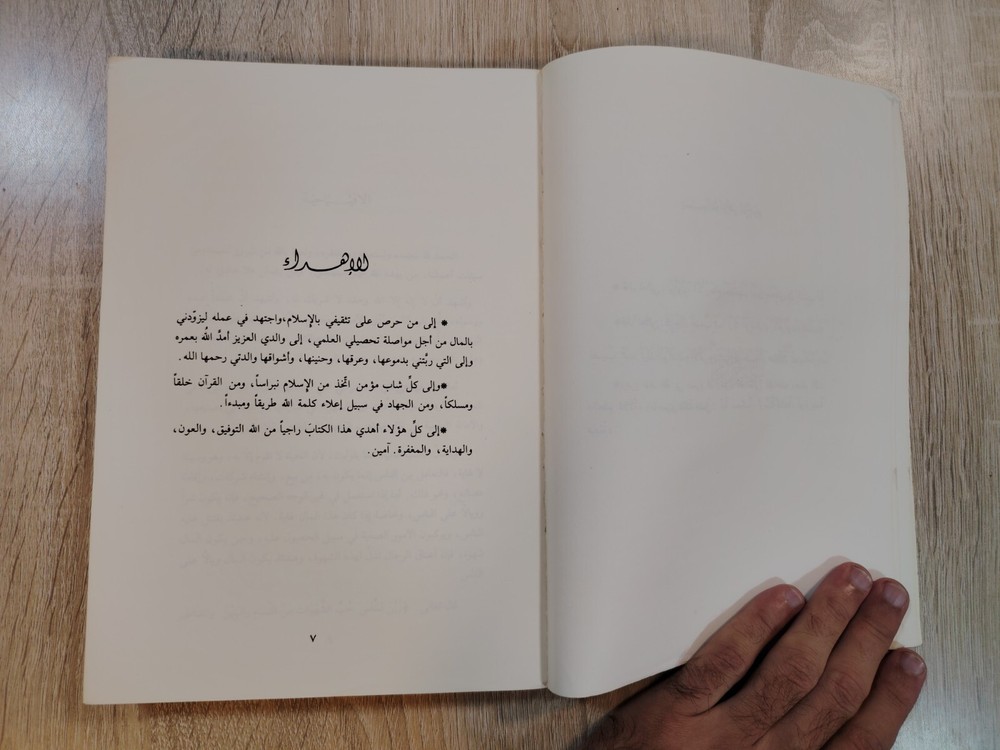 الإهداء
* إلى من حرص على تثقيفي بالإسلام،واجتهد في عمله ليزوّدني
بالمال من أجل مواصلة تحصيلي العلمي، إلى والدي العزيز أمدَّ اللهُ بعمره
وإلى التي ربَّتني بدموعها، وعرقها، وحنينها، وأشواقها والدتي رحمها الله.
*وإلى كلِّ شاب مؤمن اتَّخذ من الإسلام نبراساً، ومن القرآن خلقاً
ومسلكاً، ومن الجهاد في سبيل إعلاء كلمة الله طريقاً ومبدءاً.
*إلى كلِّ هؤلاء أهدي هذا الكتابَ راجياً من الله التوفيق، والعون،
والهداية، والمغفرة. آمين.
٧